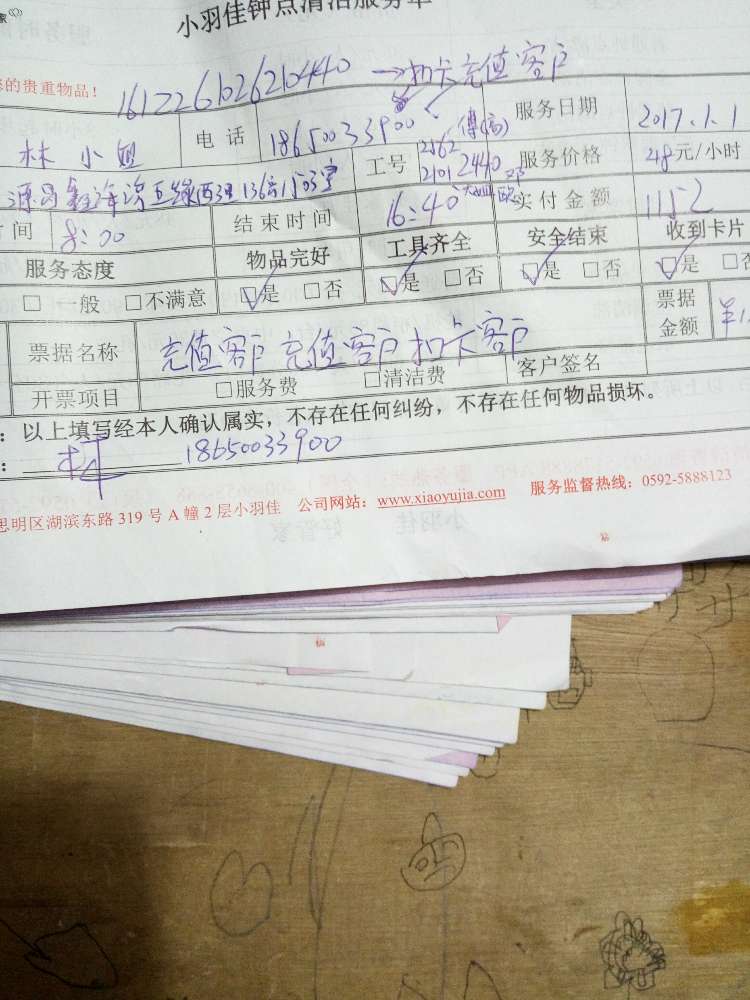 小羽佳钟点清洁服务单
的贵重物品！
1612261026210440 →扣卡充值客户
林小姐 电话 18650033900 服务日期 2017.1.1
工号 2440 服务价格 48元/小时
间 8:00 结束时间 16:40 实付金额 1152
服务态度 物品完好 工具齐全 安全结束 收到卡片
□一般 □不满意 ☑是 □否 ☑是 □否 ☑是 □否 ☑是 □否
票据名称 充值客户 充值客户 扣卡客户 票据金额
开票项目 □服务费 □清洁费 客户签名
：以上填写经本人确认属实，不存在任何纠纷，不存在任何物品损坏。
： 林 18650033900
思明区湖滨东路 319 号 A 幢 2 层小羽佳 公司网站：www.xiaoyujia.com 服务监督热线：0592-5888123